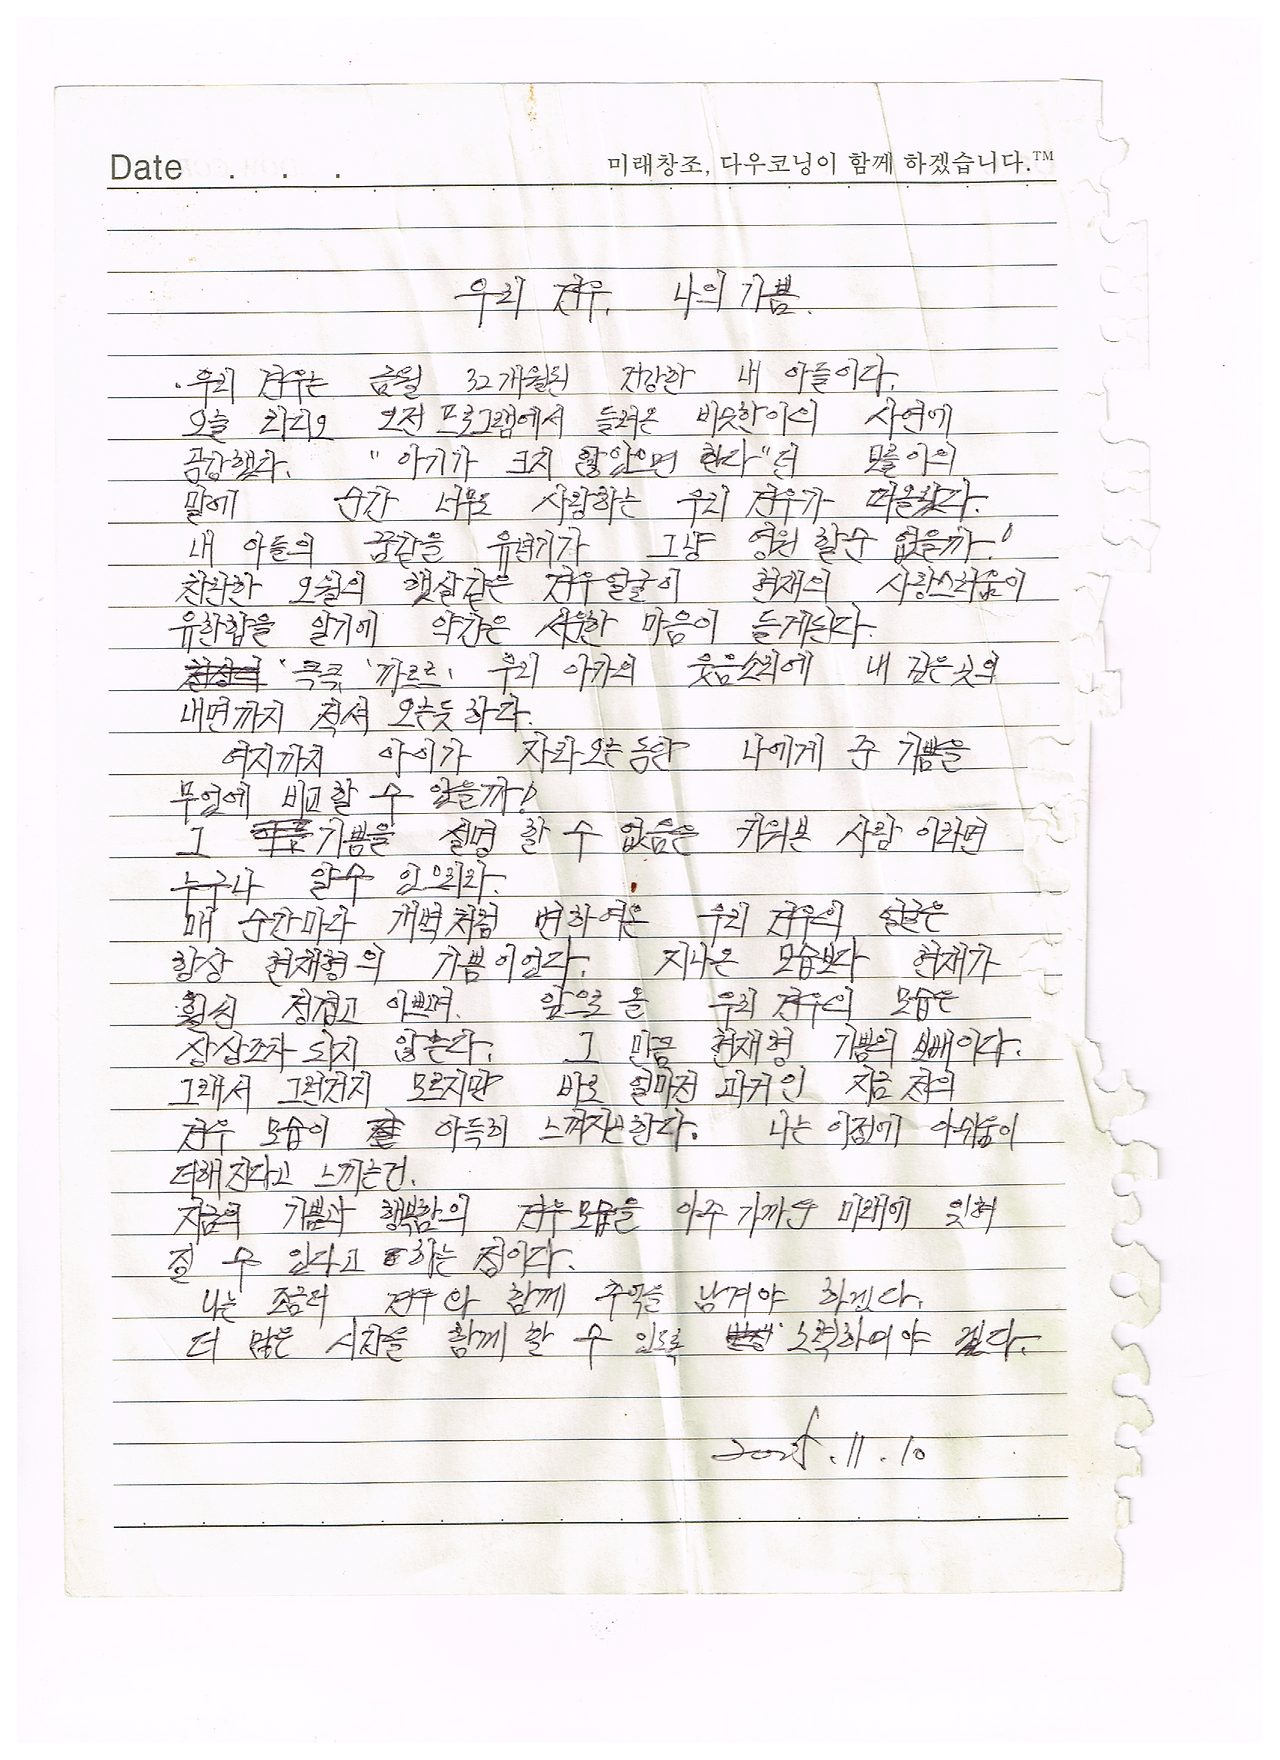 Date . . .
미래창조, 다우코닝이 함께 하겠습니다.™
우리 전우, 나의 기쁨.
우리 전우는 금월 32개월된 건강한 내 아들이다.
오늘 라디오 오전 프로그램에서 들려온 비슷한이의 사연에
공감했다. "아기가 크지 않았으면 한다"던 모를이의
말에 순간 너무도 사랑하는 우리 전우가 떠올랐다.
내 아들의 꿈같을 유년기가 그냥 영원 할순 없을까!
찬란한 오월의 햇살같은 전우얼굴이 현재의 사랑스러움이
유한함을 알기에 약간은 서운한 마음이 들게된다.
'큭큭, '까르르' 우리 아가의 웃음소리에 내 깊은곳의
내면까지 적셔 오는듯하다.
여지까지 아이가 자라오는동안 나에게 준 기쁨을
무엇에 비교할 수 있을까!
그 기쁨을 설명 할 수 없음은 키워본 사람 이라면
누구나 알수 있으리라.
매 순간마다 개벽처럼 변하여온 우리 전우의 얼굴은
항상 현재형의 기쁨이었다. 지나온 모습보다 현재가
훨씬 정겹고 이쁘며. 앞으로 올 우리 전우의 모습은
상상조차 되지 않는다. 그 만큼 현재형 기쁨의 보배이다.
그래서 그런건지 모르지만 바로 얼마전 과거인 지금 전의
전우 모습이 아득히 느껴지곤한다. 나는 이점에 아쉬움이
더해진다고 느끼는건.
지금의 기쁨과 행복함의 전우모습을 아주 가까운 미래에 잊혀
질 수 있다고 하는 점이다.
나는 조금더 전우와 함께 추억을 남겨야 하겠다.
더 많은 시간을 함께 할 수 있도록 노력하여야 겠다.
11.10